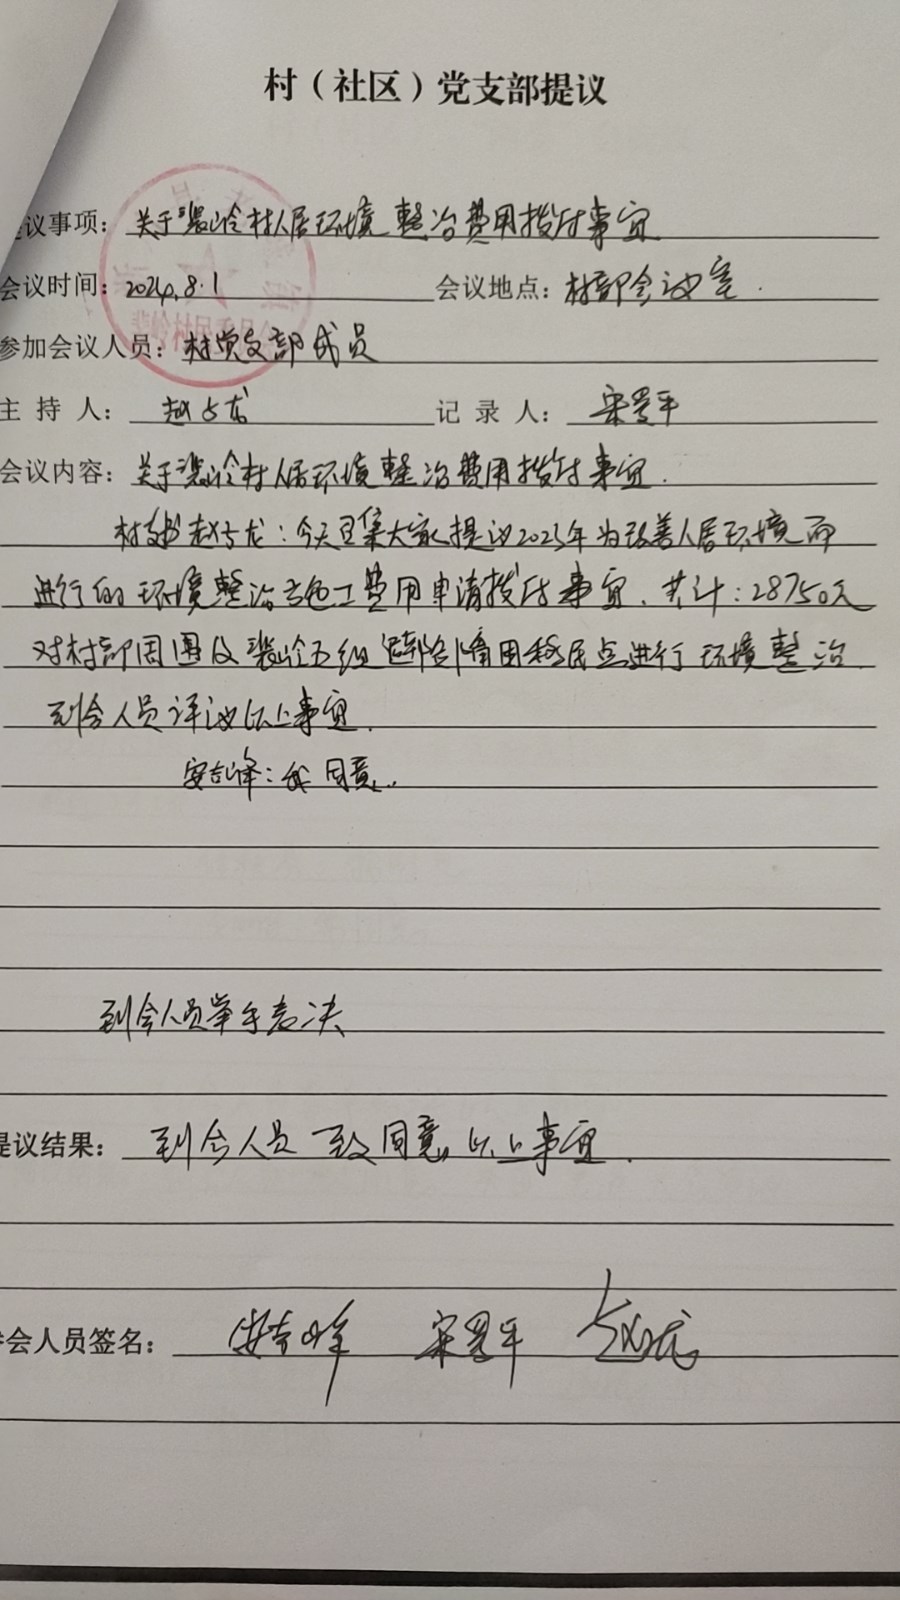 村（社区）党支部提议
议事项：关于裴岭村人居环境整治费用拨付事宜
会议时间：2024.8.1 会议地点：村部会议室.
参加会议人员：村党支部成员
主持人：赵占龙 记录人：宋平
会议内容：关于裴岭村人居环境整治费用拨付事宜.
村支书赵占龙：今天召集大家提议2023年为改善人居环境而
进行的环境整治施工费用申请拨付事宜.共计：28750元
对村部周围及裴岭五组避险移民点进行环境整治.
到会人员评议以上事宜.
安峰：我同意.
到会人员举手表决
提议结果：到会人员一致同意以上事宜.
会人员签名：安峰 宋平 赵占龙
裴岭村民委员会